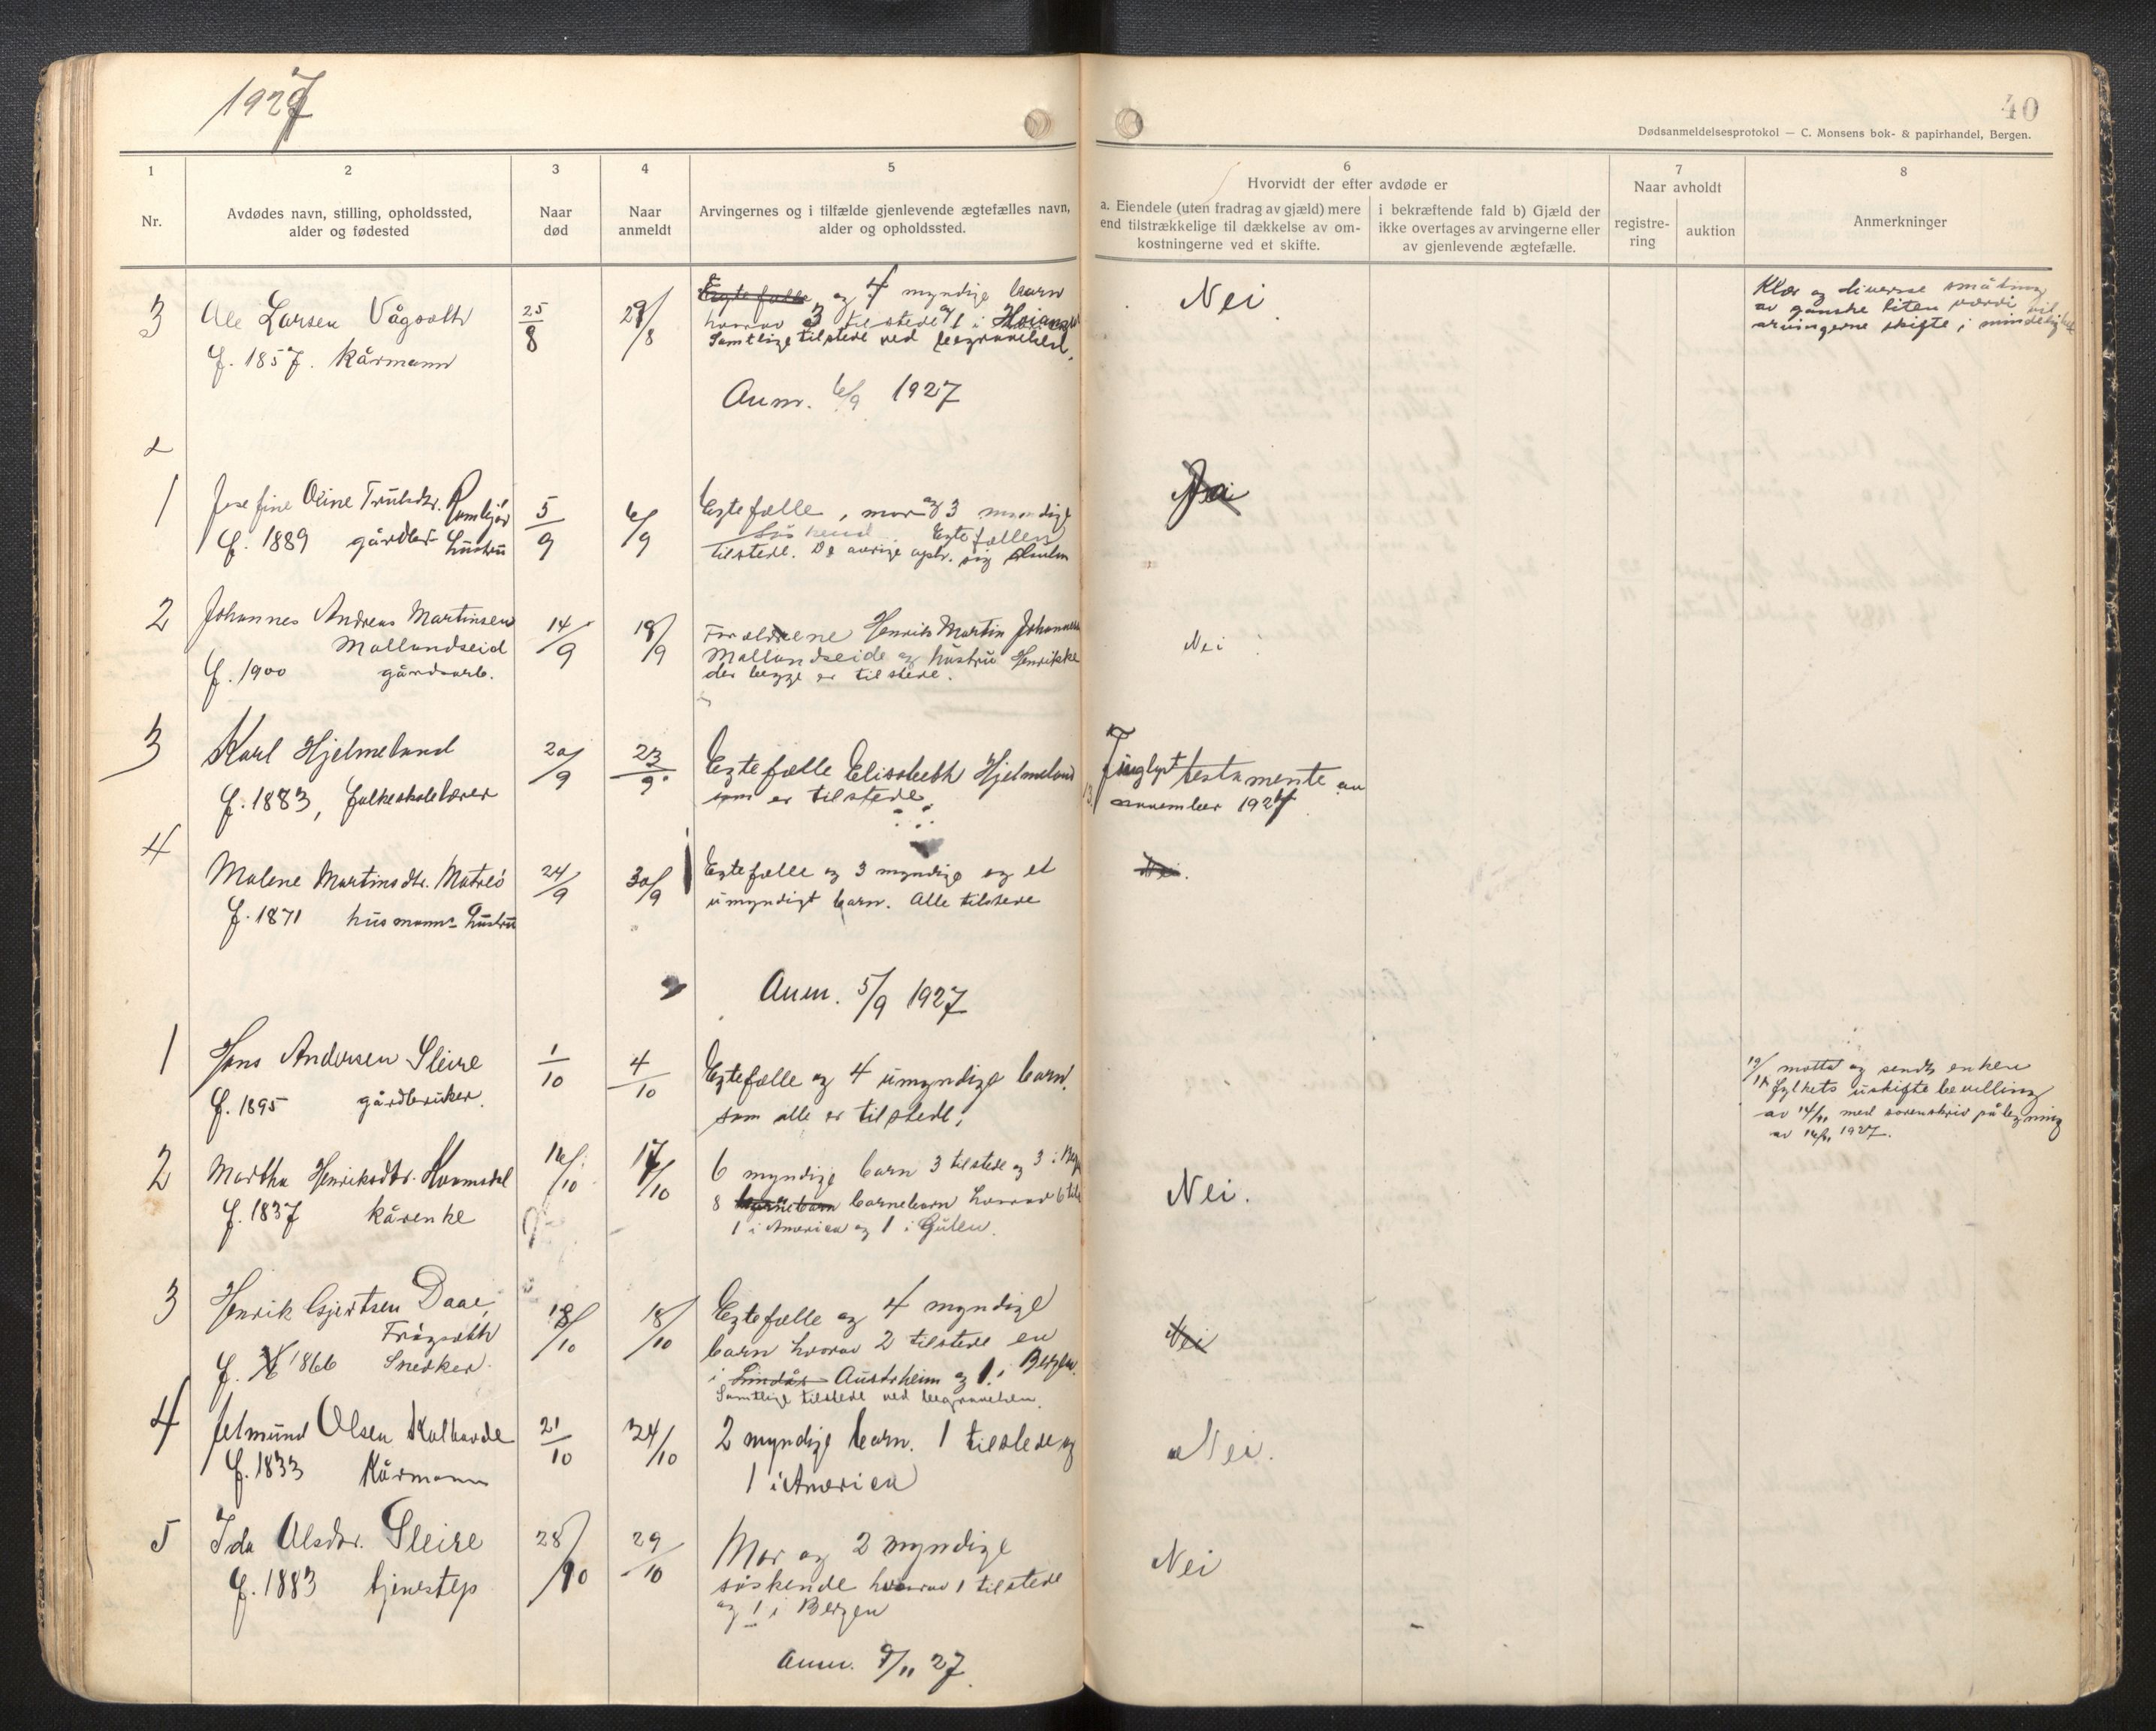 1927
40
Dødsanmeldelsesprotokol — C. Monsens bok- & papirhandel, Bergen.
1
2
3
4
5
6
7
8
Nr.
Avdødes navn, stilling, opholdssted,
alder og fødested
Naar
død
Naar
anmeldt
Arvingernes og i tilfælde gjenlevende ægtefælles navn,
alder og opholdssted.
Hvorvidt der efter avdøde er
a. Eiendele (uten fradrag av gjæld) mere
end tilstrækkelige til dækkelse av om-
kostningerne ved et skifte.
i bekræftende fald b) Gjæld der
ikke overtages av arvingerne eller
av gjenlevende ægtefælle.
Naar avholdt
registre-
ring
auktion
Anmerkninger
3
Ole Larsen Vågsæth
f. 1857. kårmann
25/8
29/8
Egtefælle og 4 myndige barn
hvorav 3 tilstede og 1 i
Samtlige tilstede ved begravelsen.
Nei.
Klær og diverse småting
av ganske liten værdi vil
arvingerne skifte i mindelighet
Anm. 6/9 1927
1
Josefine Oline Trulsdtr. Romkjør
f. 1889 gårdbr. hustru
5/9
6/9
Egtefælle, mor og 3 myndige
søskend. Egtefællen
tilstede. De øvrige oph. sig
2
Johannes Andreas Martinsen
Mollandseid
f. 1900 gårdsarb.
14/9
19/9
Forældrene Henrik Martin Johannes
Mollandseide og hustru Henrikke
der begge er tilstede.
Nei
3
Karl Hjelmeland
f. 1883, folkeskolelærer
20/9
23/9
Egtefælle Elisabeth Hjelmeland
som er tilstede
Tinglyst testamente av
november 1924
4
Malene Martinsdtr. Matre
f. 1871 husmanns hustru
24/9
30/9
Egtefælle og 3 myndige og et
umyndigt barn. Alle tilstede
Nei.
Anm. 5/9 1927
1
Hans Andersen Sleire
f. 1895 gårdbruker.
1/10
4/10
Egtefælle og 4 umyndige barn.
som alle er tilstede.
19/11 motta og sendt enken
fylkets uskiftebevilling
av 14/11 med sorenskriv påtegning
av 16/11 1927.
2
Martha Henriksdtr. Kvamsdal
f. 1837 kårenke
16/10
17/10
6 myndige barn 3 tilstede og 3 i
8 barnebarn barnebarn hvorav 6
1 i America og 1 i Gulen.
Nei.
3
Henrik Gjertsen Daae,
f. 1866 Snedker.
18/10
18/10
Egtefælle og 4 myndige
barn hvorav 2 tilstede en
i Lindås Austrheim og 1 i Bergen.
Samtlige tilstede ved begravelsen.
Nei
4
Jetmund Olsen Kolbarde
f. 1833 Kårmann
21/10
24/10
2 myndige barn. 1 tilstede og
1 i America
Nei.
5
Ida Olsdtr. Sleire
f. 1883 tjenestep
28/10
29/10
Mor og 2 myndige
søskende hvorav 1 tilstede
og 1 i Bergen
Nei
Anm. 9/11 27.